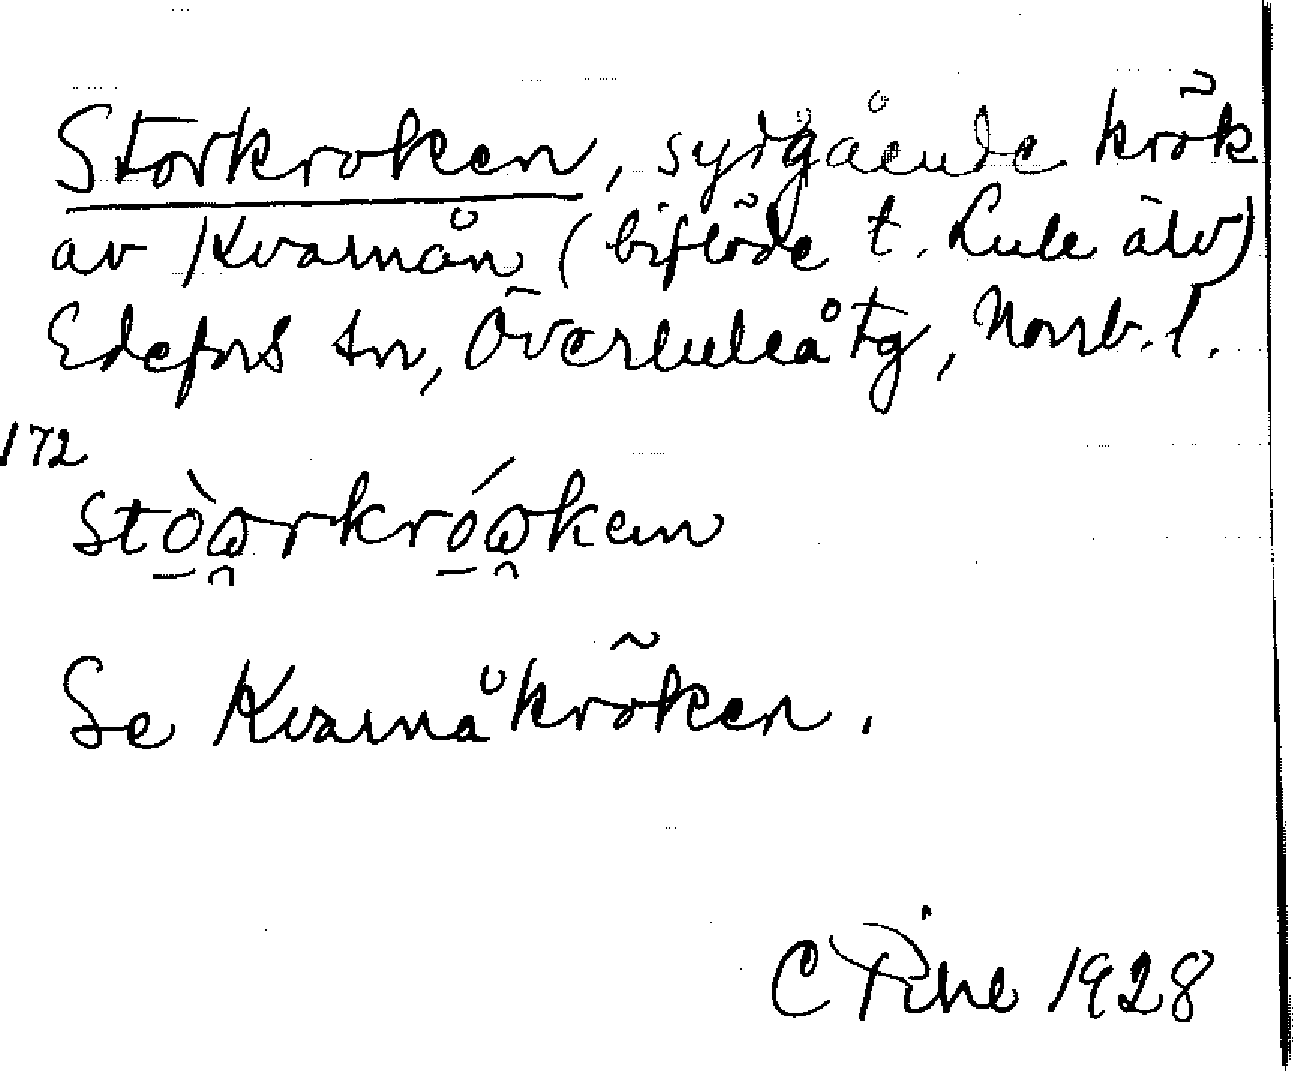 Storkroken, sydgående krök
av Kvarnån (biflöde t. Lule älv)
Edefors sn, Överluleå tg, Norrb. l.
172
stò̠ω̯rkró̠ω̯ken
Se Kvarnåkröken.
C Pihl 1928